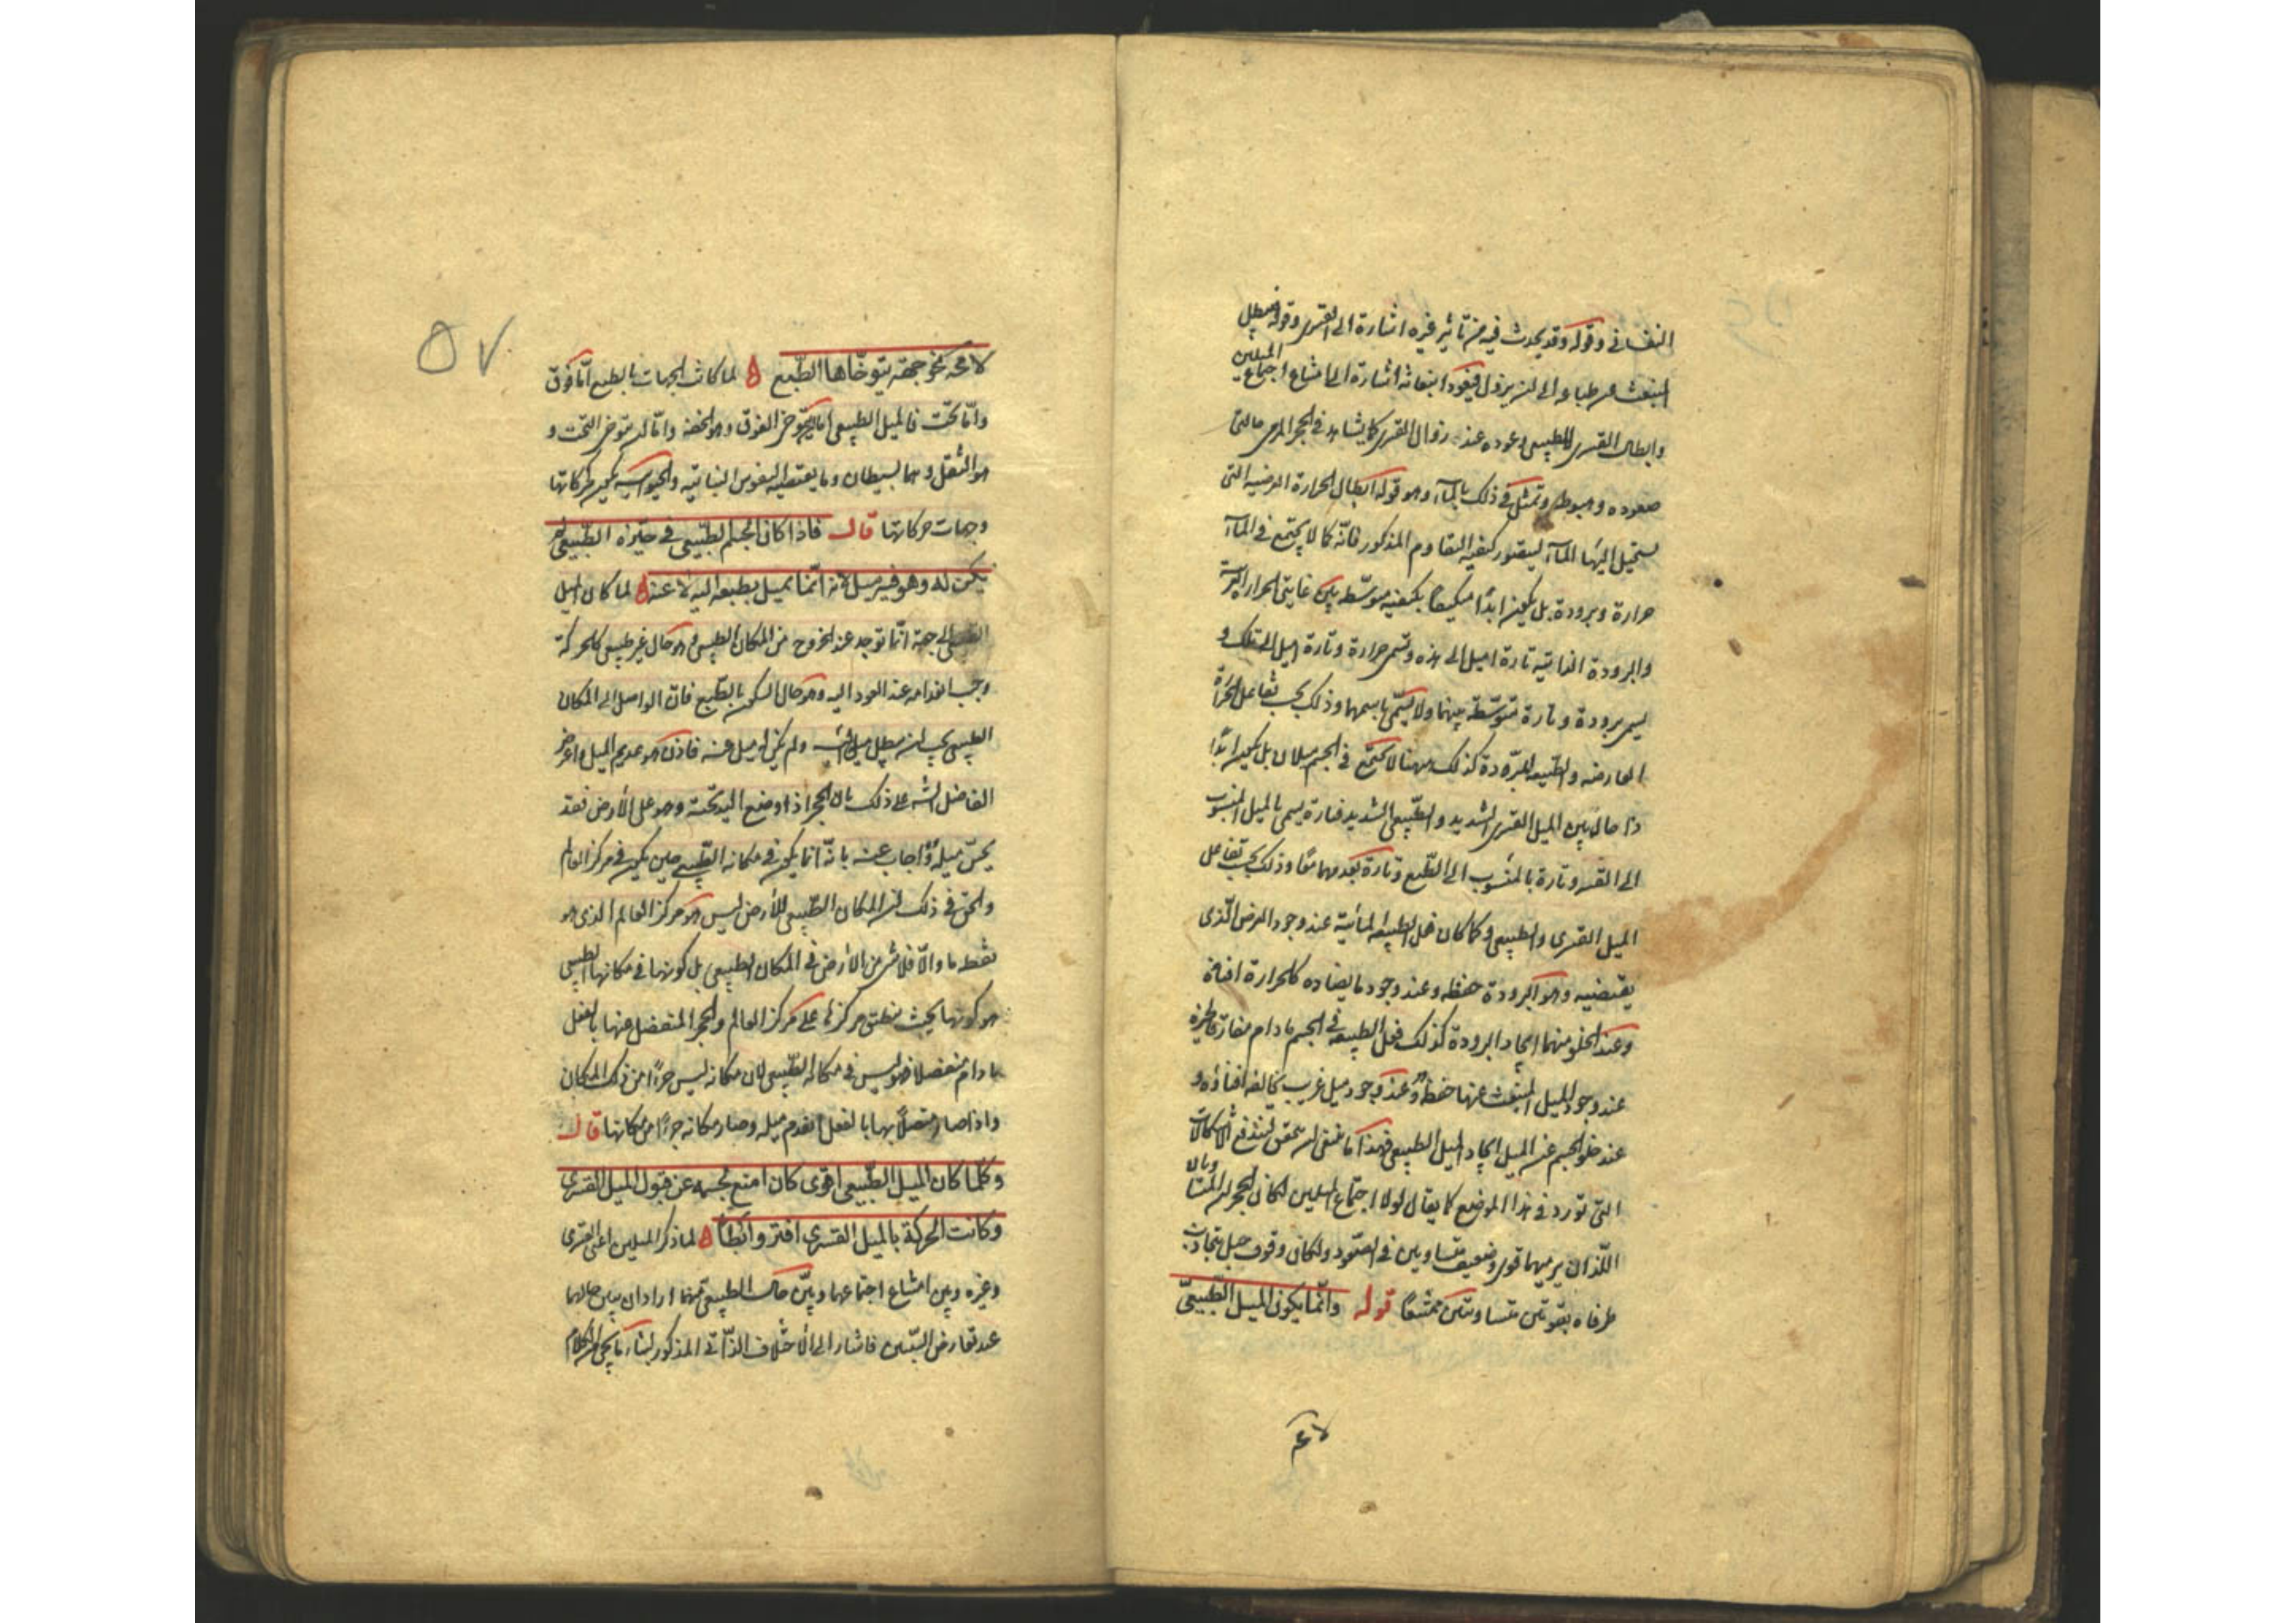 النفسانى وقوله وقد يحدث فيه من تاثير غيره اشارة الى القسرى وقوله فيبطل
المنبعث عن طباعه الى ان يزول فيعود انبعاثه اشارة الى امتناع اجتماع الميلين
وابطال القسرى للطبيعى وعوده عند زوال القسرى كما يشاهد فى الحجر المرمى حالتى
صعوده وهبوطه وتمثل فى ذلك بالماء وهو قوله ابطال الحرارة العرضية التى
يستحيل اليها الماء ليتصور كيفية التقاوم المذكور فانّه كما لا يجتمع فى الماء
حرارة وبرودة بل يكون ابدًا متكيفًا بكيفية متوسّطة بين غايتى الحرارة الغريبة
والبرودة الذاتية تارة اميل الى هذه وتسمى حرارة وتارة اميل الى تلك و
يسمى برودة وتارة متوسّطة بينهما ولا يسمّى باسمهما وذلك بحسب تفاعل الحرارة
العارضه والطبيعة المبرّدة كذلك ههنا لا يجتمع فى الجسم ميلان بل يكون ابدًا
ذا حال بين الميل القسرى الشديد والطّبيعى الشديد فتارة يسمى بالميل المنسوب
الى القسر وتارة بالمنسوب الى الطّبع وتارة بعدمهما معًا وذلك بحسب تفاعل
الميل القسرى والطبيعى وكما كان فعل الطبيعة المائية عند وجود العرض الّذى
يقتضيه وهو البرودة حفظه وعند وجود ما يضاده كالحرارة افناءه
وعند الخلو منهما ايجاد البرودة كذلك فعل الطبيعة فى الجسم ما دام مفارقا لحيزه
عند وجود الميل المنبعث عنها حفظه وعند وجود ميل غريب يخالفه افناؤه و
عند خلو الجسم عن الميل ايجاد الميل الطبيعى فهذا ما ينبغى ان يحقق ليندفع الاشكالات
التى تورد فى هذا الموضع كما يقال لولا اجتماع الميلين لكان الحجران المتساويان
اللّذان يرميهما قوى وضعيف متساويين فى الصّعود ولكان وقوف حبل يتجاذب
طرفاه بقوتين متساويتين ممتنعًا قوله وانّما يكون الميل الطّبيعىّ
لا محه
لا محه نحو جهة يتوخّاها الطّبع لما كانت الجهات بالطبع امّا فوق
وامّا تحت فالميل الطبيعى اما يتوخى الفوق وهو الخفة وامّا ان يتوخى التحت و
هو الثقل وهما بسيطان وما يقتضيه النفوس النباتية والحيوانية يكون كحركاتها
وجهات حركاتها قال فاذا كان الجسم الطّبيعى فى حيّزه الطّبيعى لم
يكن له وهو فيه ميل لانه انّما يميل بطبعه اليه لا عنه لما كان الميل
الطبيعى الى جهة انّما توجد عند الخروج من المكان الطبيعى وهو حال غير طبيعى كالحركة
وجب انعدامه عند العود اليه وهو حال السكون بالطّبع فان الواصل الى المكان
الطبيعى يجب ان يبطل ميله اليه ولم يكن له ميل عنه فاذن هو عديم الميل واعترض
الفاضل الشه على ذلك بان الحجر اذا وضع اليد تحته وهو على الأرض فقد
يحسّ ميله وأجاب عنه بانّه انما يكون فى مكانه الطّبيعى حين يكون فى مركز العالم
والحق فى ذلك ان المكان الطّبيعى للأرض ليس هو مركز العالم الذى هو
نقطة ما والّا فلا شئ من الأرض فى المكان الطبيعى بل كونها فى مكانها الطبيعى
هو كونها بحيث ينطبق مركزها على مركز العالم والحجر المنفصل عنها بالفعل
ما دام منفصلا فهو ليس فى مكانه الطّبيعى لان مكانه ليس جزءًا من ذلك المكان
واذا صار متصلًا بها بالفعل انعدم ميله وصار مكانه جزءًا من مكانها قال
وكلّما كان الميل الطّبيعى اقوى كان امنع لجسمه عن قبول الميل القسرى
وكانت الحركة بالميل القسرى افتر وابطأ لما ذكر الميلين اعنى القسرى
وغيره وبين امتناع اجتماعهما وبيّن حال الطبيعى منهما اراد ان يبين حالهما
عند تعارض السّببين فاشار الى الاختلاف الذّاتى المذكور
٥٧